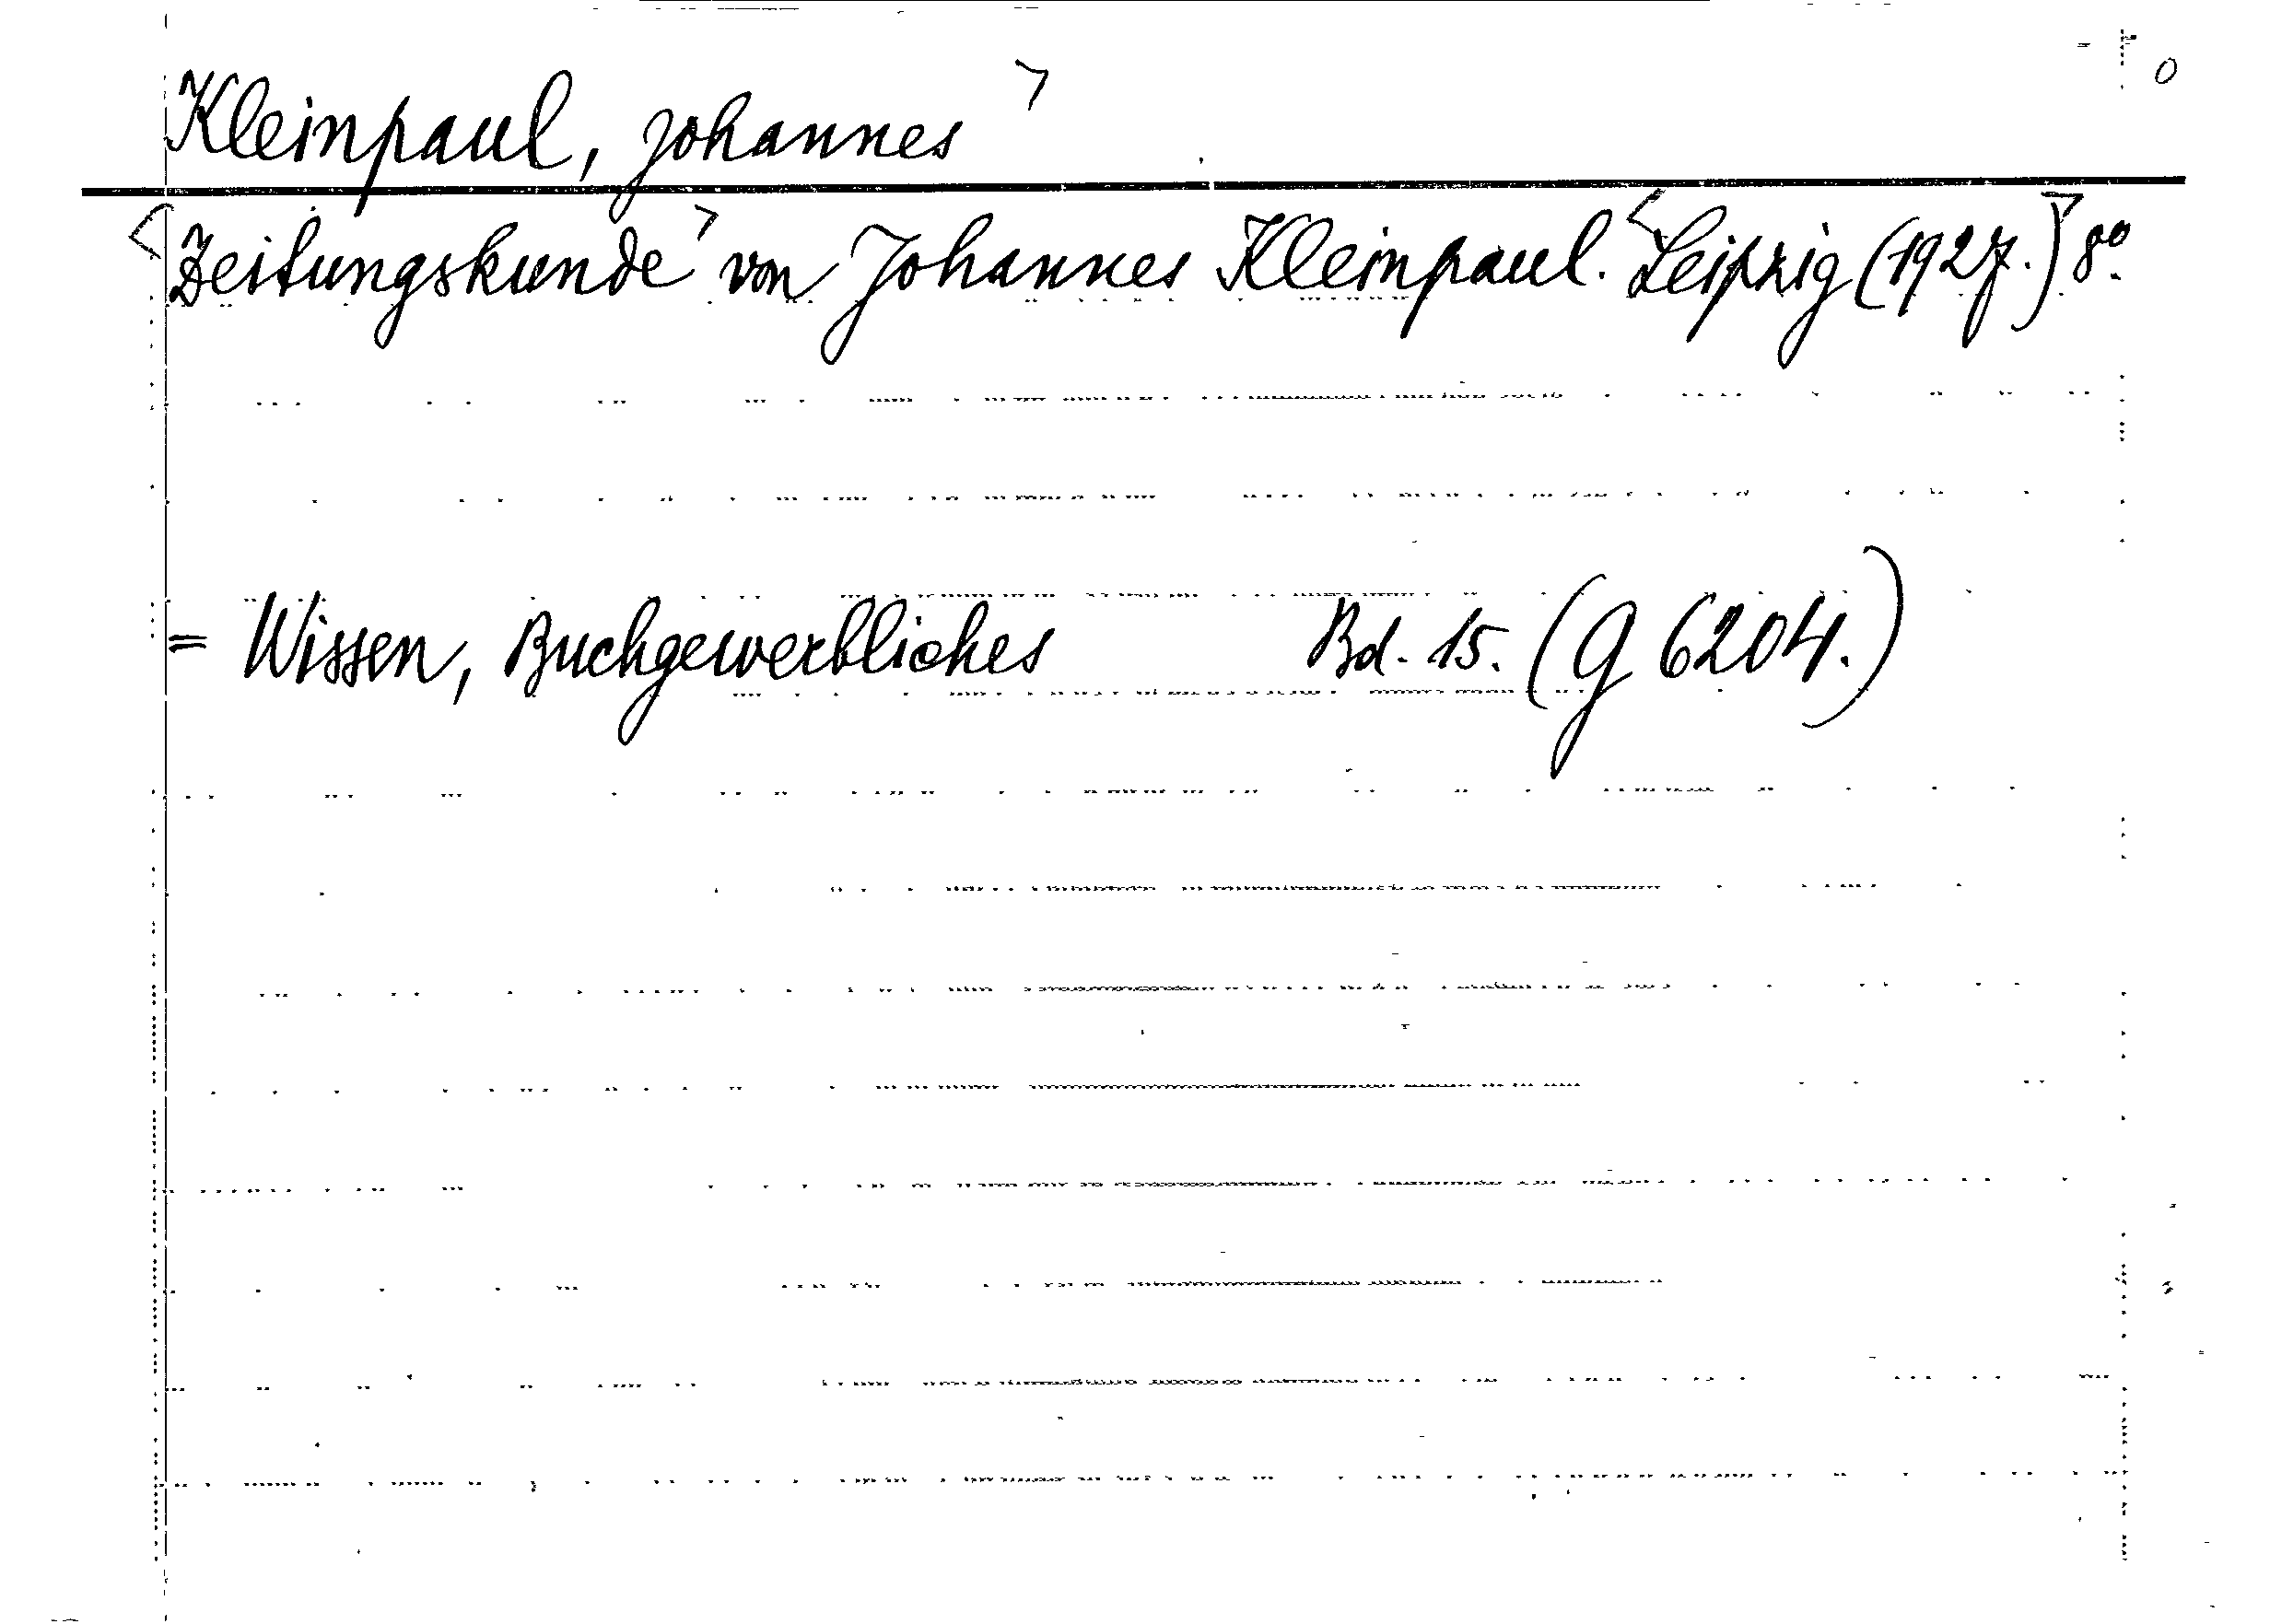 0
Kleinpaul, Johannes >
<Zeitungskunde> von Johannes Kleinpaul. <Leipzig (1927.)> 8º.
= Wissen, Buchgewerbliches Bd. 15. (G 6204.)